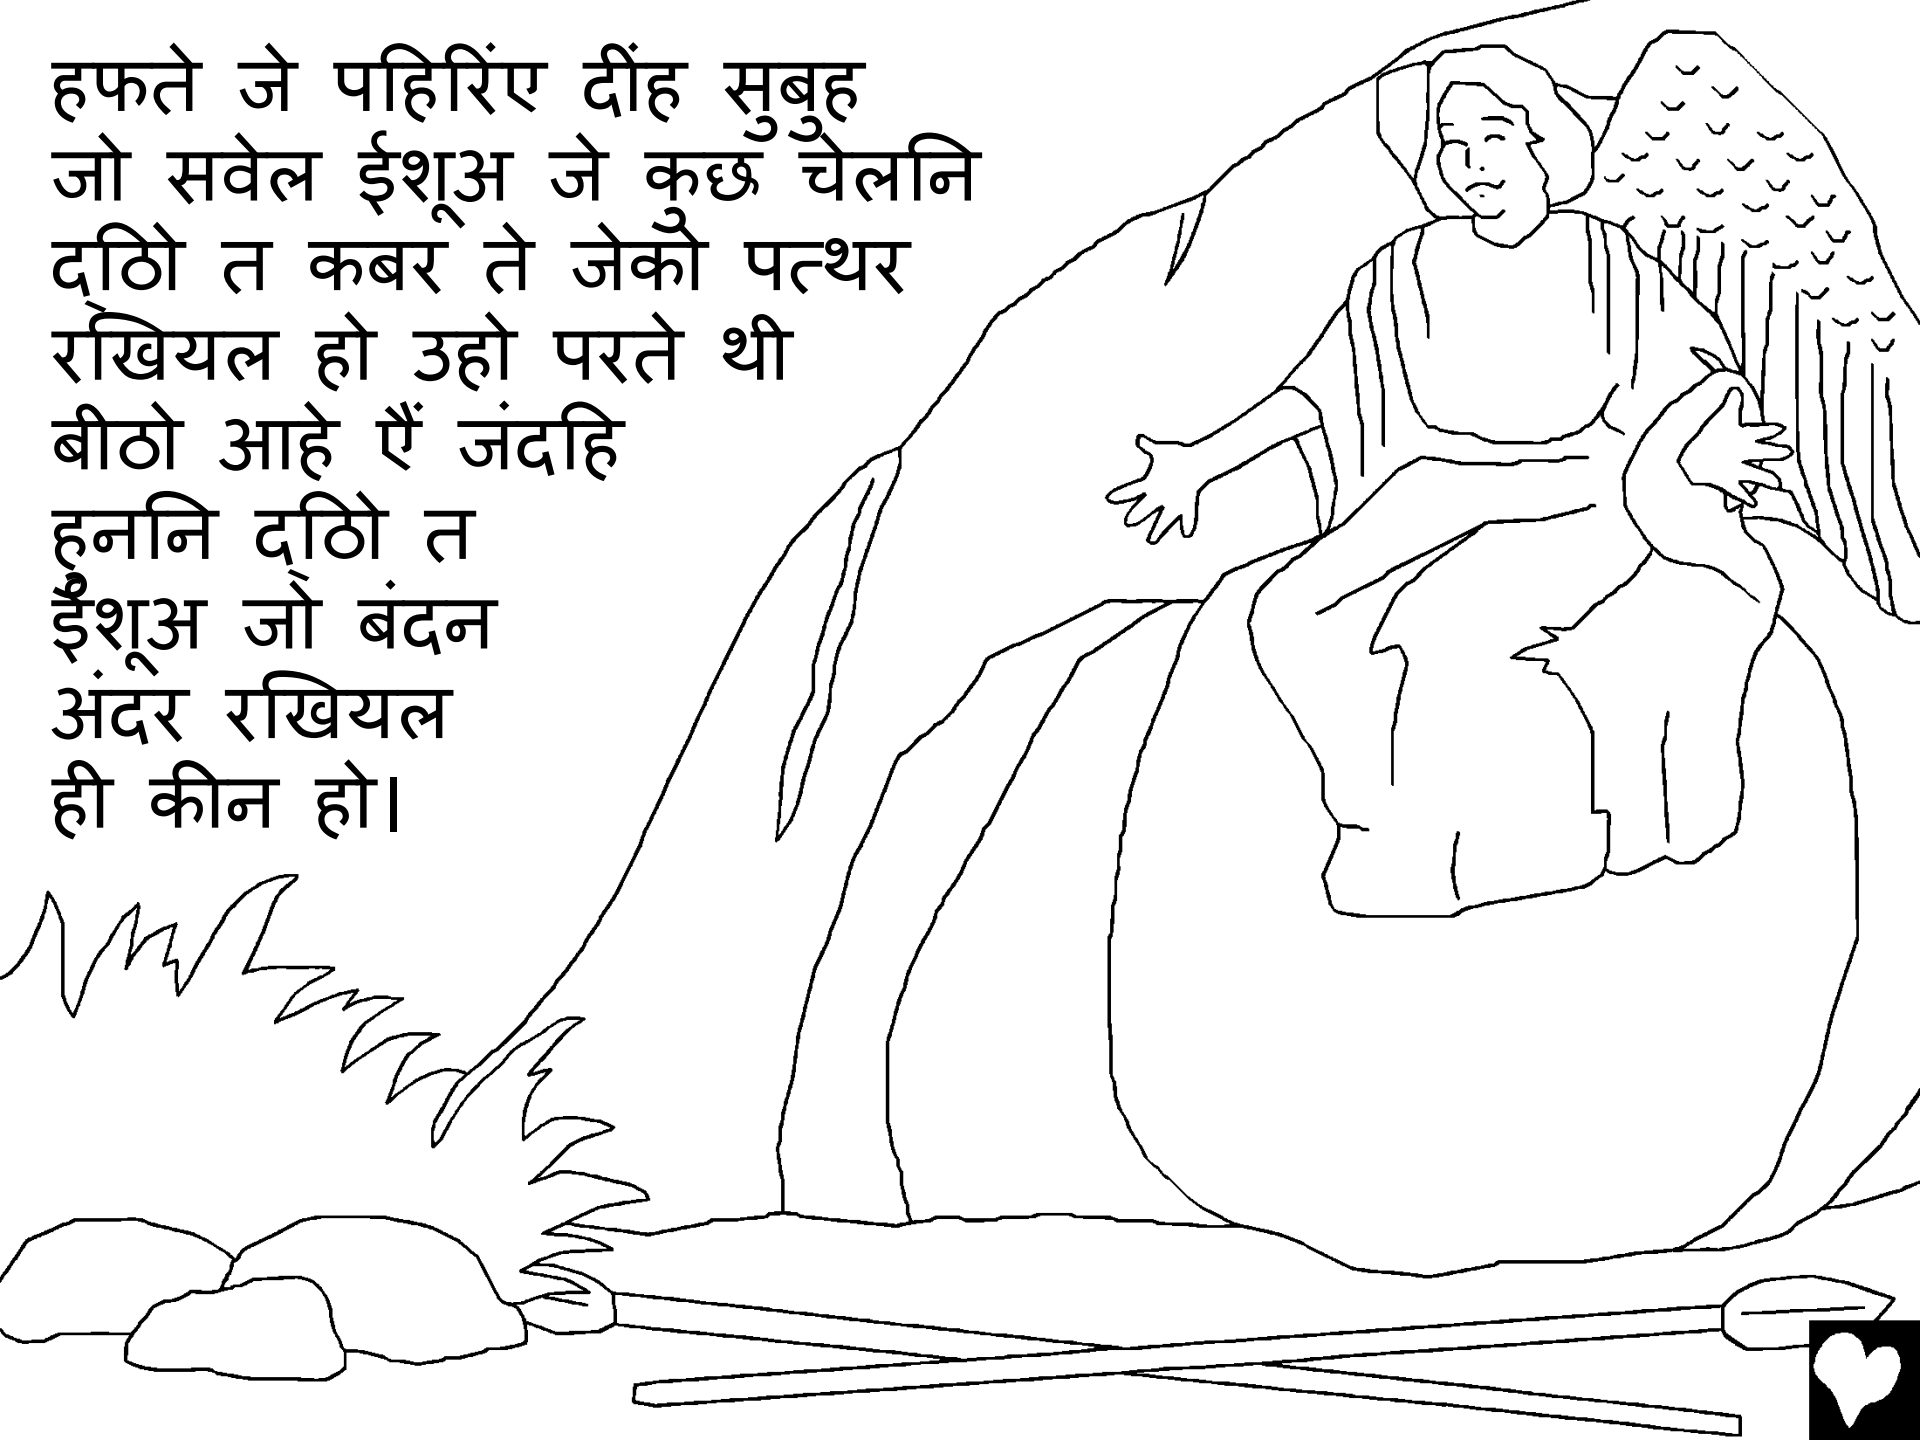 हफते जे पहिरिंए दींह सुबुह
जो सवेल ईशूअ जे कुछ चेलनि
द्ठिो त कबर ते जेको पत्थर
रखियल हो उहो परते थी
बीठो आहे ऐं जंदहि
हुननि द्ठिो त
ईशूअ जो बंदन
अंदर रखियल
ही कीन हो।